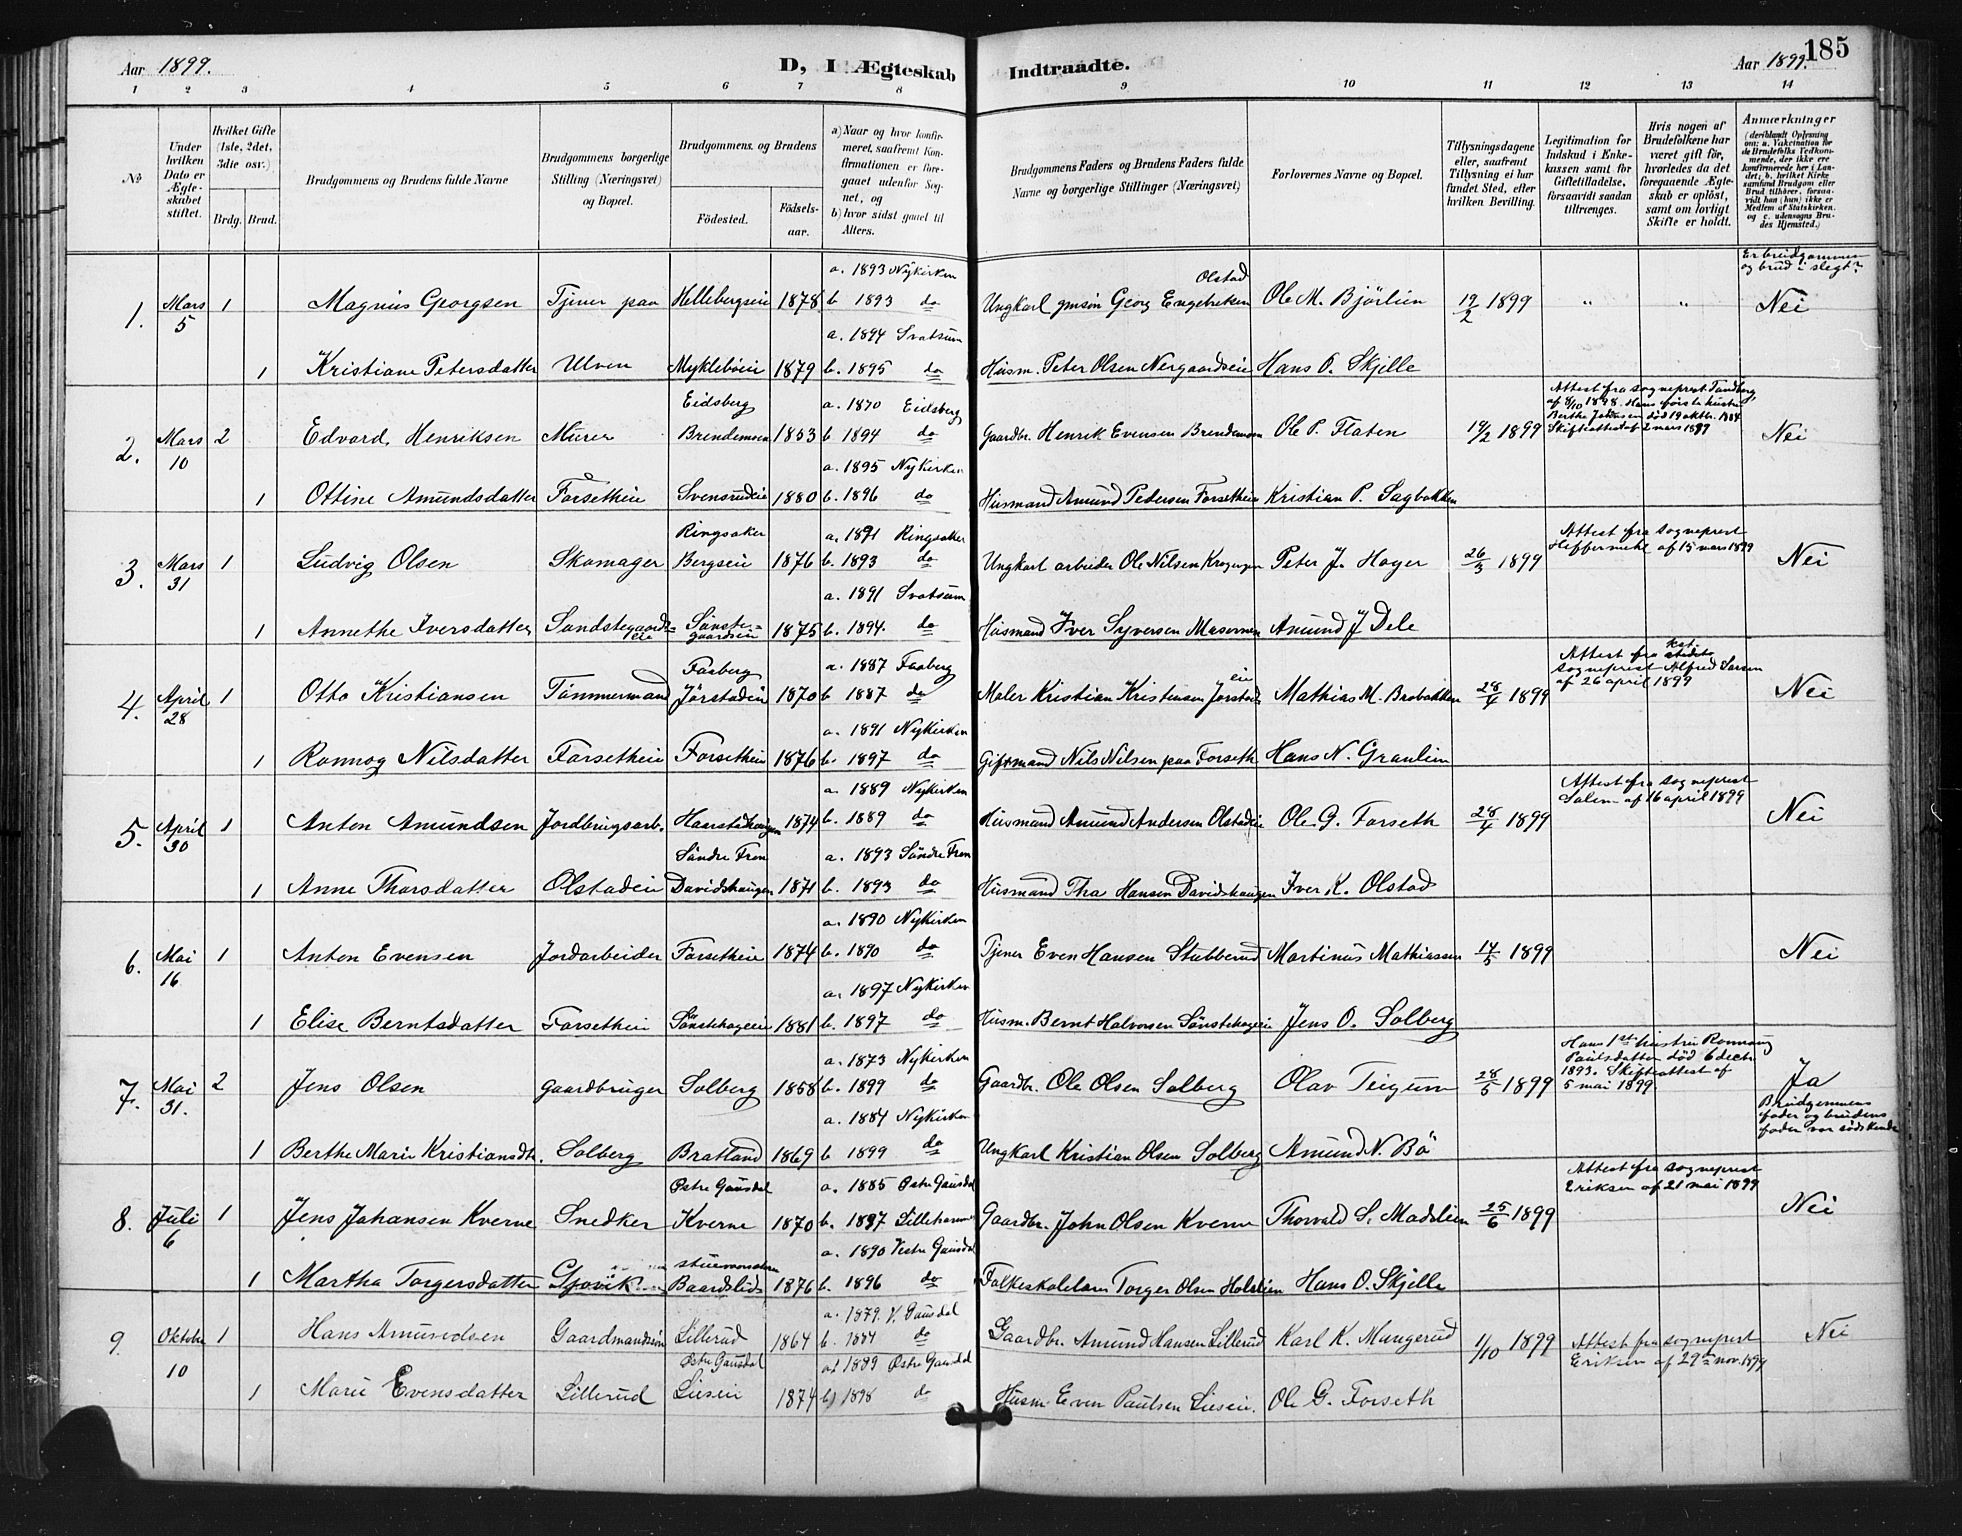 Aar 1899.
D, I Ægteskab Indtraadte.
Aar 1899.
185
1 2 3 4 5 6 7 8 9 10 11 12 13 14
№
Under hvilken Dato er Ægteskabet stiftet.
Hvilket Gifte (1ste, 2det, 3die osv.)
Brdg. Brud.
Brudgommens og Brudens fulde Navne
Brudgommens borgerlige Stilling (Næringsvei) og Bopæl.
Brudgommens og Brudens
Födested.
Födselsaar.
a) Naar og hvor konfirmeret, saafremt Konfirmationen er foregaaet udenfor Sognet, og
b) hvor sidst gaaet til Alters.
Brudgommens Faders og Brudens Faders fulde Navne og borgerlige Stillinger (Næringsvei)
Forlovernes Navne og Bopæl.
Tillysningsdagene eller, saafremt Tillysning ei har fundet Sted, efter hvilken Bevilling.
Legitimation for Indskud i Enkekassen samt for Giftetilladelse, forsaavidt saadan tiltrænges.
Hvis nogen af Brudefolkene har været gift för, hvorledes da det foregaaende Ægteskab er oplöst, samt om lovligt Skifte er holdt.
Anmærkninger
(deriblandt Oplysning om: a. Vakcination for de Brudefolks Vedkommende, der ikke ere konfirmerede her i Landet; b. hvilket Kirkesamfund Brudgom eller Brud tilhører, forsaavidt han (hun) ikke er Medlem af Statskirken, og c. udensogns Brudes Hjemsted.)
Er brudgommen og brud i slegt?
1. Mars 5 1 Magnus Georgsen Tjener paa Hellebergseie 1878 a. 1893 Nykirken b 1893 do Ungkarl gmsön Georg Engebretsen Olstad Ole M. Bjørlien 19/2 1899 " " Nei
1 Kristiane Petersdatter Ulven Myklebøeie 1879 a. 1894 Svatsum b. 1895 do Husm. Peter Olsen Nergaardseie Hans O. Skjelle
2. Mars 10 2 Edvard Henriksen Murer Eidsberg Brendemoen 1853 a. 1870 Eidsberg b 1894 do Gaardbr. Henrik Evensen Brendemoen Ole P. Flaten 19/2 1899 Attest fra sogneprest Tandberg af 8/10 1898. Hans første hustru Berthe Johnsen død 19 oktbr. 1884 Skifteattest af 2 mars 1899 Nei
1 Ottine Amundsdatter Forsetheie Svensrudeie 1880 a. 1895 Nykirken b. 1896 do Husmand Amund Pedersen Forsetheie Kristian P. Sagbakken
3. Mars 31 1 Ludvig Olsen Skomager Ringsaker Bergseie 1876 a. 1891 Ringsaker b. 1893 do Ungkarl arbeider Ole Nilsen Peter J. Høyer 26/3 1899 Attest fra sogneprest Heffermehl af 15 mars 1899 Nei
1 Annethe Iversdatter Sandstegaardseie Sönstegaardseie 1875 a. 1891 Svatsum b. 1894. do Husmand Iver Syversen Amund J Dele
4. April 28 1 Otto Kristiansen Tömmermand Faaberg Jørstadeie 1870 a. 1887 Faaberg b 1887 do Maler Kristian Kristensen Jørstadeie Mathias M. Brobakken 28/4 1899 Attest fra kst. sogneprest Alfred Larsen af 26 april 1899 Nei
1 Ronnog Nilsdatter Forsetheie Forsetheie 1876 a. 1891 Nykirken b. 1897 do Giftmand Nils Nilsen paa Forseth Hans N. Granlien
5. April 30 1 Anton Amundsen Jordbrugsarb. Haarstadhaugen 1874 a. 1889 Nykirken b. 1889 do Husmand Amund Andersen Olstadeie Ole G. Forseth 28/4 1899 Attest fra sogneprest Salem af 16 april 1899 Nei
1 Anne Thorsdatter Olstadeie Söndre Fron Davidshaugen 1871 a. 1893 Söndre Fron b. 1893 do Husmand Tha Hansen Davidshaugen Iver K. Olstad
6. Mai 16 1 Anton Evensen Jordarbeider Forsetheie 1874 a. 1890 Nykirken b. 1890 do Tjener Even Hansen Stubberud Martinus Mathiassen 14/5 1899 Nei
1 Elise Berntsdatter Forsetheie Sönstehageeie 1881 a. 1897 Nykirken b. 1897 do Husm. Bernt Halvorsen Sönstehageeie Jens O. Solberg
7. Mai 31. 2 Jens Olsen Gaardbruger Solberg 1858 a. 1873 Nykirken b. 1899 do Gaardbr. Ole Olsen Solberg Olav Teigum 28/5 1899 Hans 1ste hustru Ronnaug Paulsdatter död 6 decbr 1893. Skifteattest af 5 mai 1899. Ja Brudgommens fader og brudens fader var sødskende
1 Berthe Marie Kristiansdtr. Solberg Bratland 1869 a. 1884 Nykirken b 1899 do Ungkarl Kristian Olsen Solberg Amund N. Bö
8. Juli 6 1 Jens Johansen Kverne Snedker Østre Gausdal Kverne 1870 a. 1885 Østre Gausdal b. 1897 Lillehammer Gaardbr. John Olsen Kverne Thorvald S. Madslien 25/6 1899 Attest fra sogneprest Eriksen af 21 mai 1899 Nei
1 Martha Torgersdatter Gjøvik Baardslids 1876 a. 1890 Vestre Gausdal b. 1896 do Folkeskolelærer Torger Olsen Holslien Hans O. Skjelle
9. Oktober 10 1 Hans Amundsen Gaardmandssön Lillerud 1864 a. 1879. V. Gausdal b. 1884 do Gaardbr. Amund Hansen Lillerud Karl K. Mungerud 1/10 1899 Attest fra sogneprest Eriksen af 29de nov. 1899 Nei
1 Marie Evensdatter Lillerud Østre Gausdal Lieseie 1874 a) 1899 Østre Gausdal b) 1898 do Husm. Even Paulsen Lieseie. Ole G. Forseth